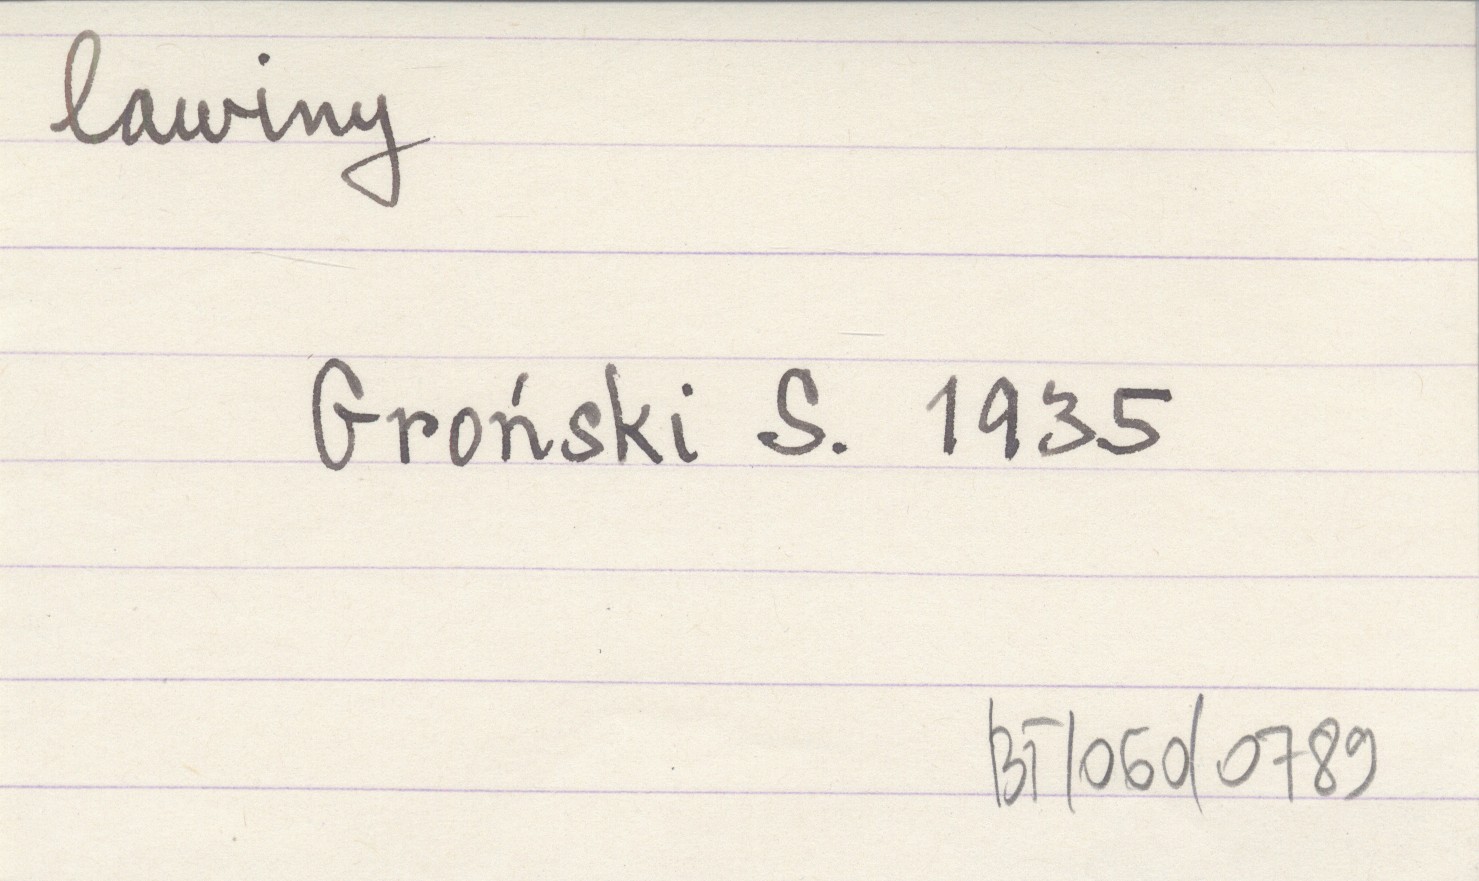 lawiny
Groński S. 1935
BT/060/0789